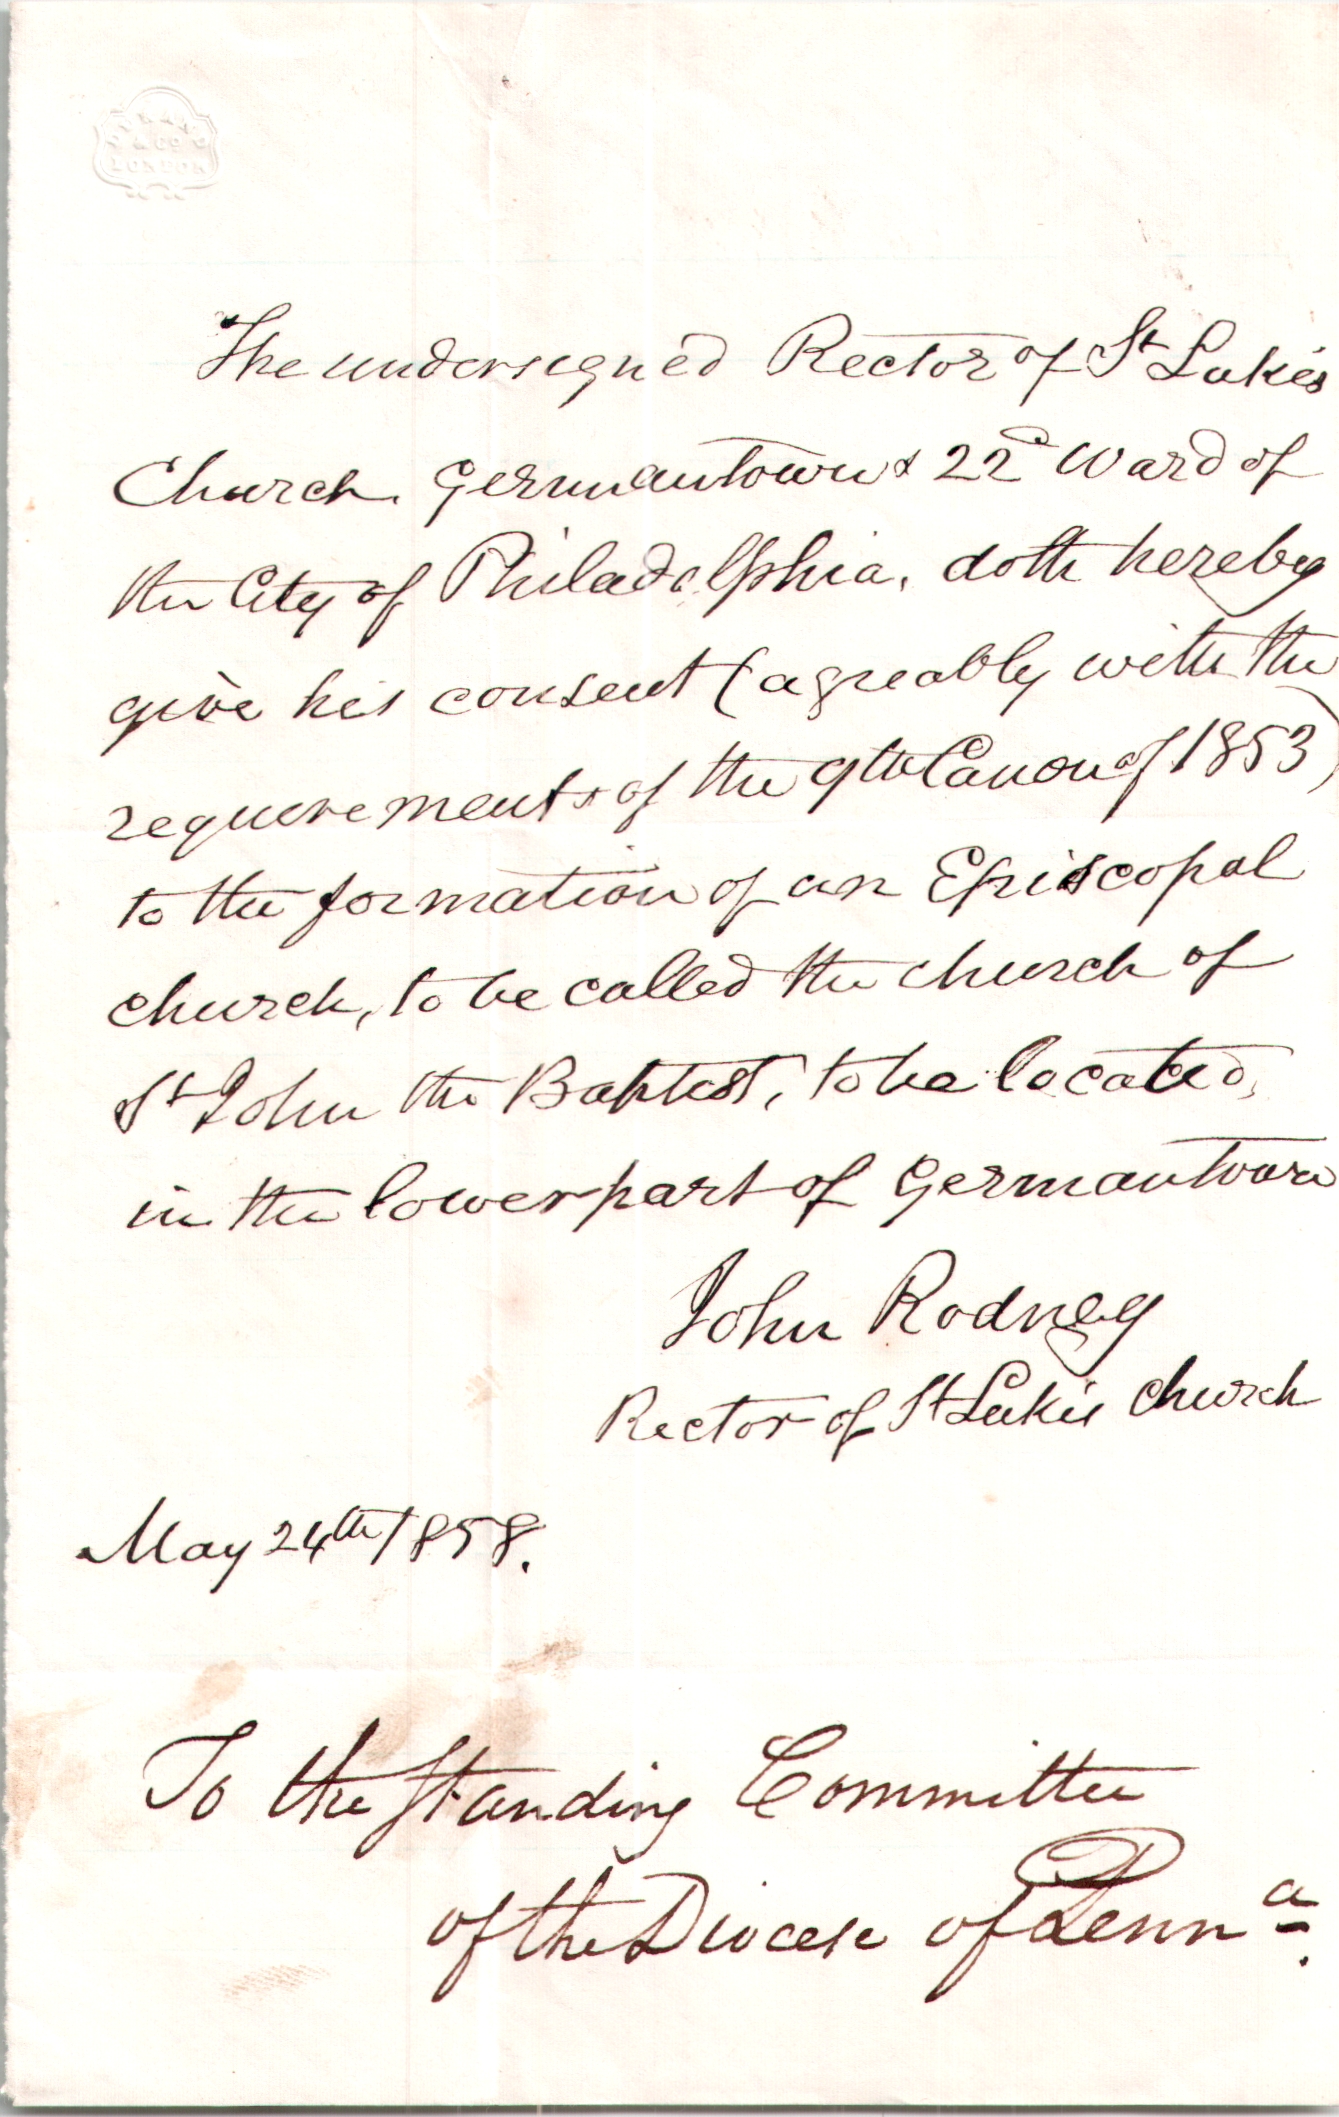 & Co
LONDON
The undersigned Rector of St Luke's
Church. Germantown & 22d Ward of
the City of Philadelphia, doth hereby
give his consent (agreably with the
requirements of the 9th Canon of 1853)
to the formation of an Episcopal
church, to be called the church of
St John the Baptist, to be located,
in the lower part of Germantown
John Rodney
Rector of St Luke's Church
May 24th 1858.
To the Standing Committee
of the Diocese of Penna.